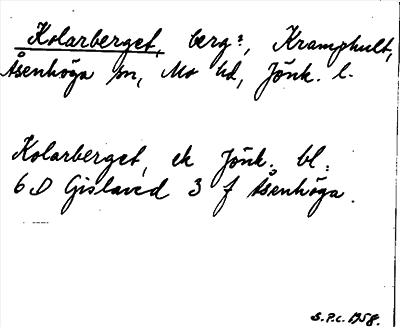 Kolarberget, berg?, Kramphult,
Åsenhöga sn, Mo hd, Jönk. l.
Kolarberget, ek Jönk. bl.
6 D Gislaved 3 f Åsenhöga.
S.P.c. 1958.